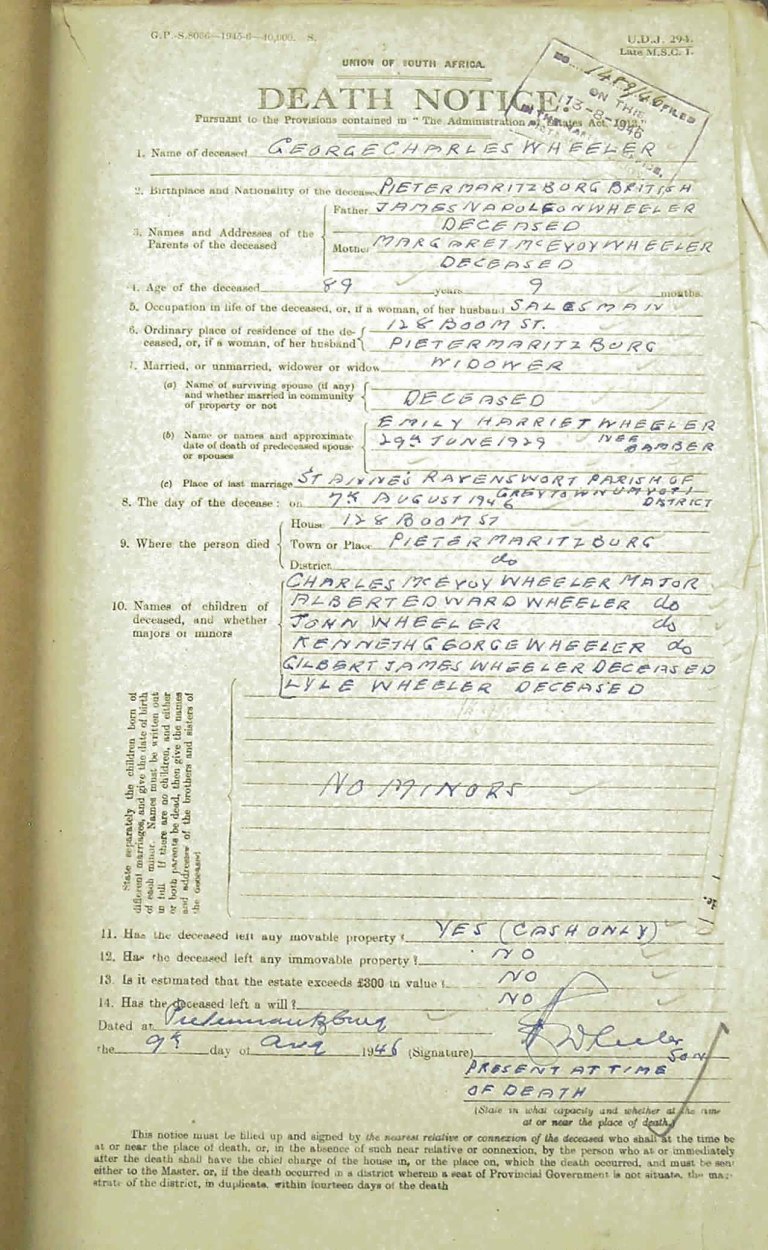 G.P.-S.8036—1945-6—40,000. S.
U.D.J. 294.
Late M.S.C. 1.
UNION OF SOUTH AFRICA.
DEATH NOTICE.
Pursuant to the Provisions contained in "The Administration of Estates Act, 1913."
NO. 1489/46 FILED
ON THIS
13-8-1946
IN THE
1. Name of deceased GEORGE CHARLES WHEELER
2. Birthplace and Nationality of the deceased PIETERMARITZBURG BRITISH
3. Names and Addresses of the Parents of the deceased
Father JAMES NAPOLEON WHEELER
DECEASED
Mother MARGARET McEVOY WHEELER
DECEASED
4. Age of the deceased 89 years 9 months.
5. Occupation in life of the deceased, or, if a woman, of her husband SALESMAN
6. Ordinary place of residence of the de- 128 BOOM ST.
ceased, or, if a woman, of her husband PIETERMARITZBURG
7. Married, or unmarried, widower or widow WIDOWER
(a) Name of surviving spouse (if any)
and whether married in community
of property or not DECEASED
EMILY HARRIET WHEELER
(b) Name or names and approximate
date of death of predeceased spouse
or spouses
29th JUNE 1929 NEE BAMBER
(c) Place of last marriage ST ANNES RAVENSWORT PARISH OF
GREYTOWN UMVOTI DISTRICT
8. The day of the decease: on 7th AUGUST 1946
9. Where the person died
House 128 BOOM ST
Town or Place PIETERMARITZBURG
District do
10. Names of children of
deceased, and whether
majors or minors
CHARLES McEVOY WHEELER MAJOR
ALBERT EDWARD WHEELER do
JOHN WHEELER do
KENNETH GEORGE WHEELER do
GILBERT JAMES WHEELER DECEASED
LYLE WHEELER DECEASED
State separately the children born of
different marriages, and give the date of birth
of each minor. Names must be written out
in full. If there are no children, and either
or both parents be dead, then give the names
and addresses of the brothers and sisters of
the deceased
NO MINORS
11. Has the deceased left any movable property? YES (CASH ONLY)
12. Has the deceased left any immovable property? NO
13. Is it estimated that the estate exceeds £300 in value? NO
14. Has the deceased left a will? NO
Dated at Pietermaritzburg
the 9th day of Aug 1946 (Signature) Wheeler
SON
PRESENT AT TIME
OF DEATH
(State in what capacity and whether at the time
at or near the place of death.)
This notice must be filled up and signed by the nearest relative or connexion of the deceased who shall at the time be
at or near the place of death, or, in the absence of such near relative or connexion, by the person who at or immediately
after the death shall have the chief charge of the house in, or the place on, which the death occurred, and must be sent
either to the Master, or, if the death occurred in a district wherein a seat of Provincial Government is not situate, the ma-
strate of the district, in duplicate, within fourteen days of the death